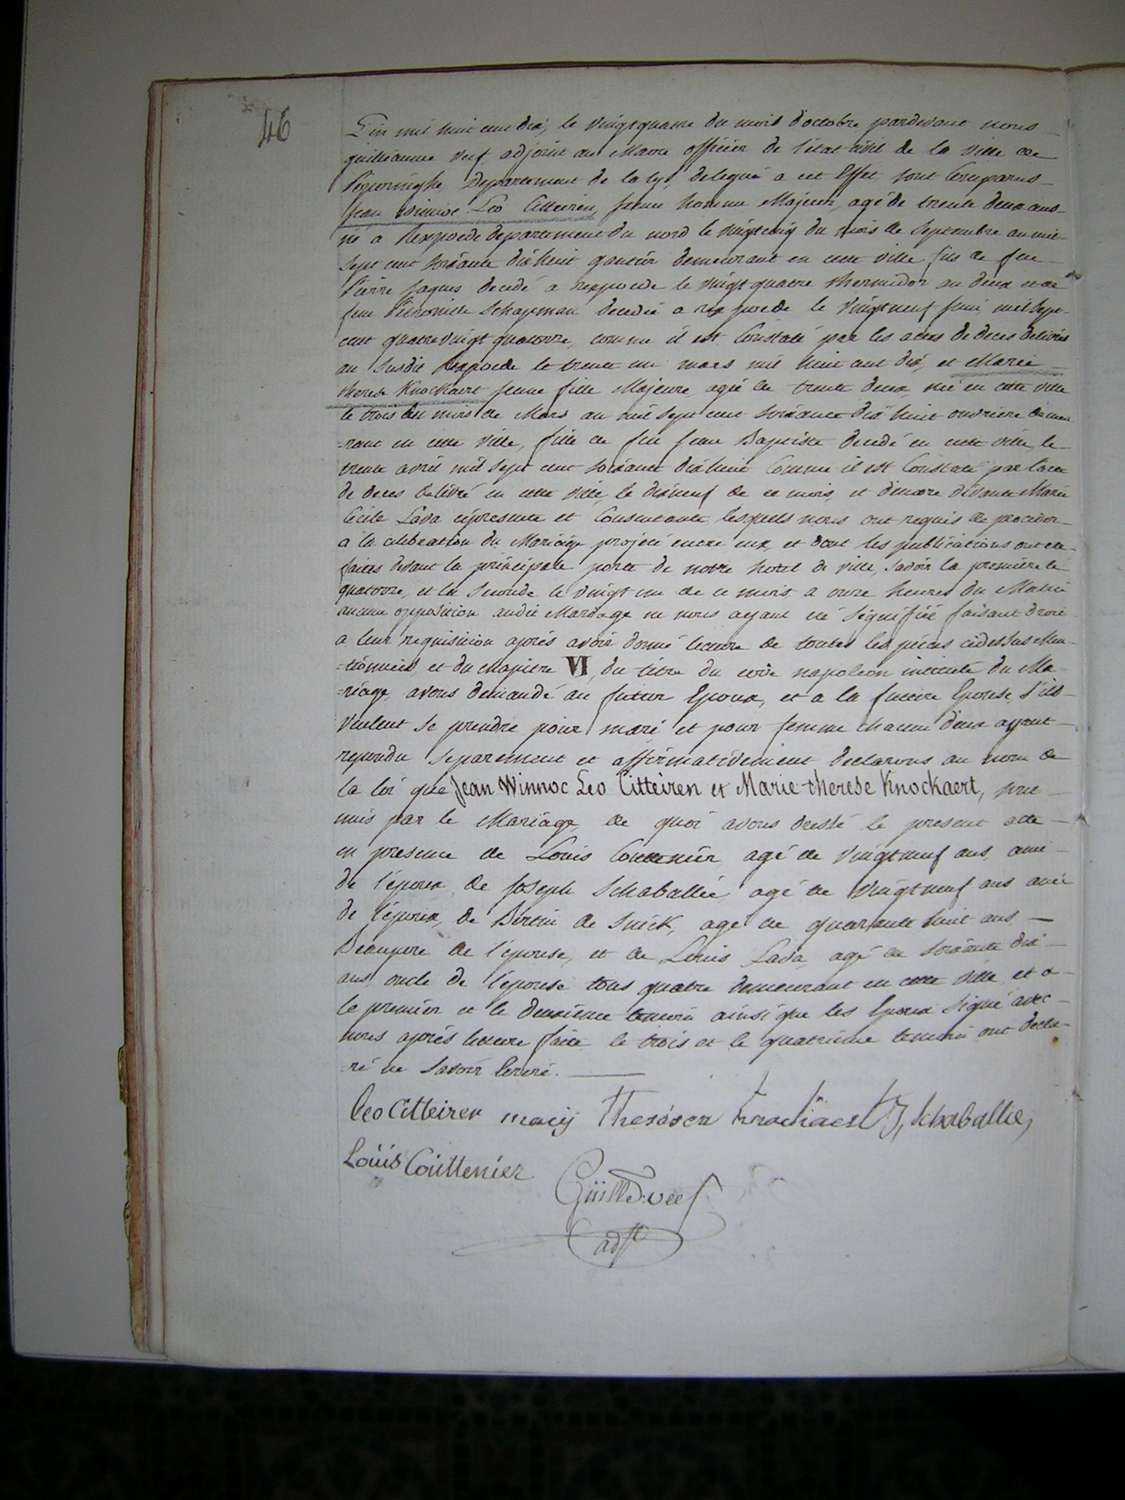 46
L'an mil huit cent dix, le vingtquatre du mois d'octobre pardevant nous
guillaume Veef adjoint au Maire officier de l'état civil de la ville de
Poperinghe Departement de la Lys, delegué a cet Effet, sont Comparus
Jean Winnoc Leo Citteiren, jeune homme Majeur, agé de trente deux ans
né a Rexpoede departement du nord le vingtcinq du mois de Septembre an mil
sept cent soixante dixhuit demeurant en cette ville, fils de feu
Pierre Jaques decedé a rexpoede le vingt quatre thermidor an deux et de
feue Schapman decedée a rexpoede le vingtneuf juin mil sept
cent quatrevingt quatorze, comme il est Constaté par les actes de deces delivrés
au susdit Rexpoede le trente un mars mil huit cent dix, et Marie
therese Knockaert jeune fille Majeure, agée de trente deux, née en cette ville
le trois du mois de Mars an mil sept cent soixante dix huit ouvriere demeu
=rant en cette ville, fille de feu Jean Baptiste decedé en cette ville le
trente avril mil sept cent soixante dixhuit Comme il est Constaté par l'acte
de deces delivré en cette ville le dixneuf de ce mois, et de Marie
Cecile Lava cipresente et Consentante, lesquels nous ont requis de proceder
a la celebration du Mariage projeté entre eux, et dont les publications ont été
faites devant la principale porte de notre hotel de ville, savoir la première le
quatorze, et la seconde le vingt un de ce mois a onze heures du Matin
aucune opposition audit Mariage ne nous ayant été signifiée faisant droit
a leur requisition après avoir donné lecture de toutes les pieces cidessus Men
=tionnées et du chapitre VI, du titre du code napoleon intitulé du Ma-
=riage, avons demandé au futur Epoux, et a la future Epouse, s'ils
veulent se prendre pour mari et pour femme chacun d'eux ayant
repondu separement et affirmativement declarons au nom de
la loi que Jean Winnoc Leo Citteiren et Marie-therese Knockaert, sont
unis par le Mariage, de quoi avons dressé le present acte
en presence de Louis Couttenier agé de vingtneuf ans, ami
de l'epoux, de Joseph Schaballie, agé de vingtneuf ans ami
de l'epoux, de Bertin de Snick, agé de quarante huit ans,
Beaupere de l'epouse, et de Louis Lava, agé de soixante dix
ans oncle de l'epouse tous quatre demeurant en cette ville et a
le premier et le deuxieme temoin ainsi que les Epoux signé avec
nous après lecture faite, le trois et le quatrieme temoin ont decla-
=ré ne savoir Ecrire.
Leo Citteiren marij Theresen Knockaert J, Schaballie,
Louis Couttenier
Guille Veef
adjt